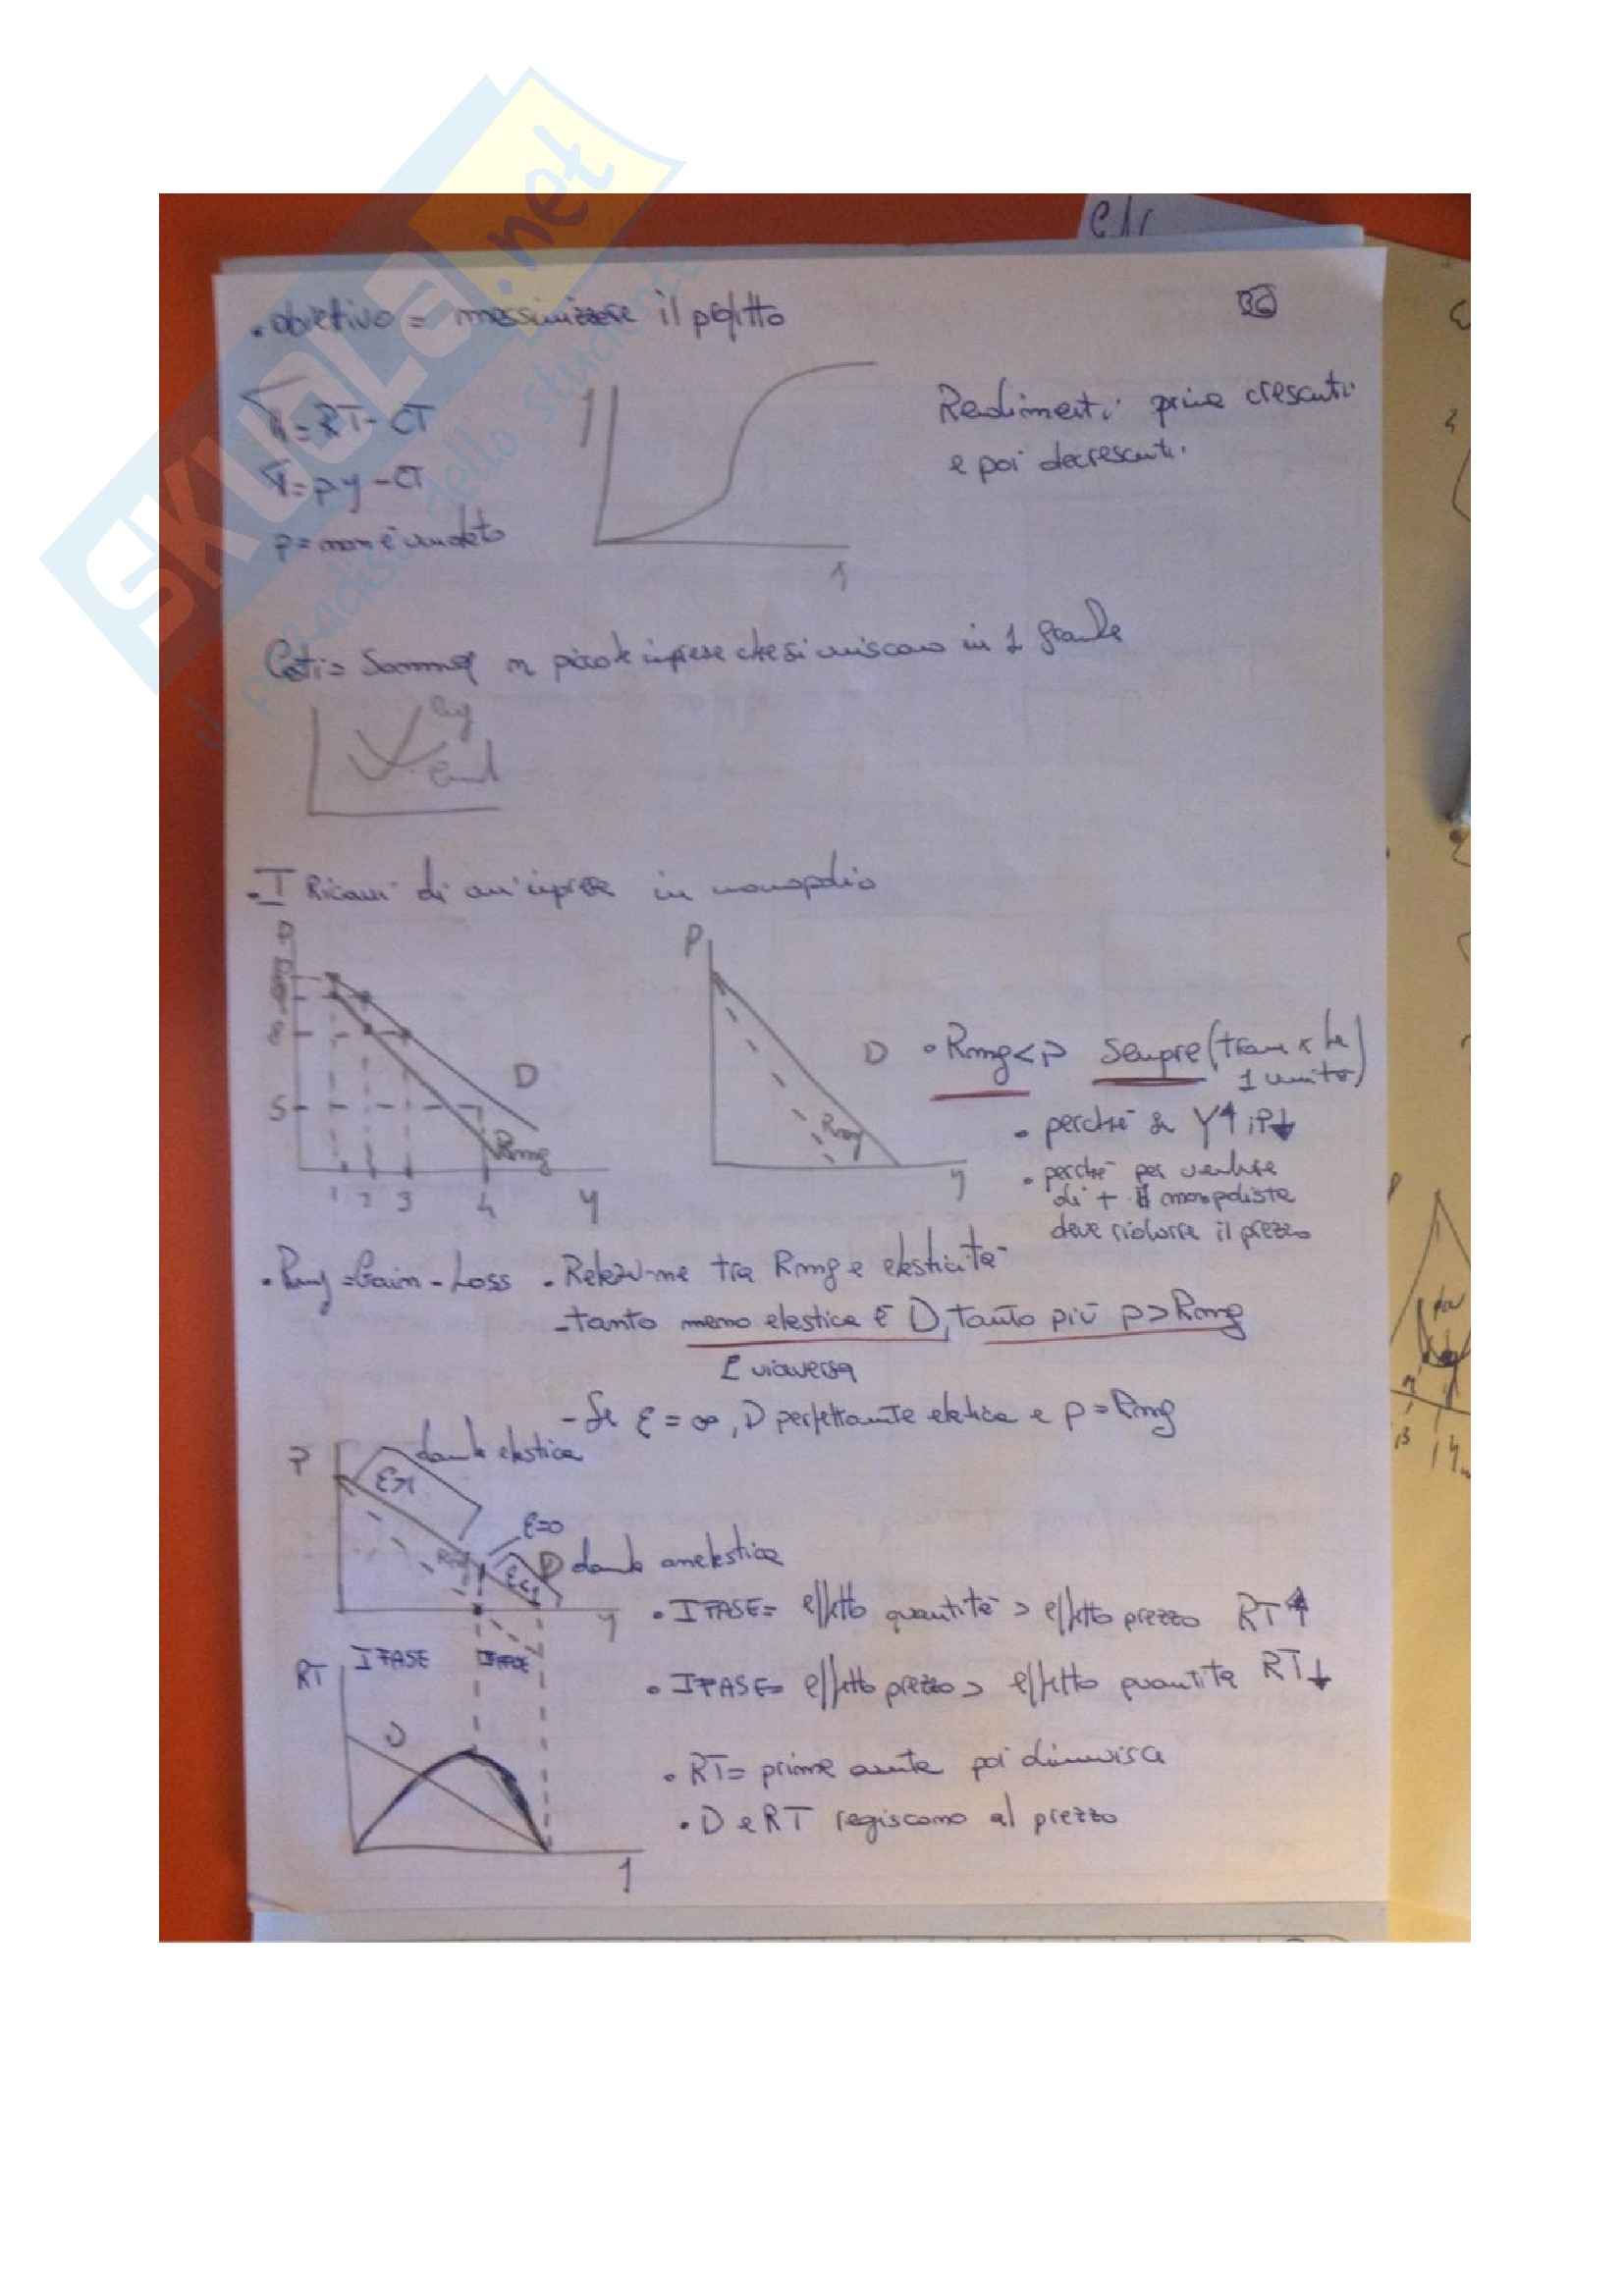 SKUOLA.net
il paradiso dello studente
eli
36
• obiettivo = massimizzare il profitto
π=RT-CT
π=py-CT
p=non è un dato
Rendimenti prima crescenti
e poi decrescenti.
y
1
Costi= Somma n piccole imprese che si uniscono in 1 grande
Cmg
• I Ricavi di un'impresa in monopolio
P
5
D
Rmg
1 2 3 4 y
P
D
Rmg
y
• Rmg<P Sempre (tranne x la
1 unità)
• perché se Y↑ iP↓
• perché per vendere
di + il monopolista
deve ridurre il prezzo
• Rmg=Gain-Loss
• Relazione tra Rmg e elasticità
-tanto meno elastica è D, tanto più p>Rmg
E viceversa
- Se ε=∞, D perfettamente elastica e p=Rmg
P
domanda elastica
ε>1
ε=0
Rmg
ε<1
D
domanda anelastica
y
• I FASE= effetto quantità > effetto prezzo RT↑
RT
I FASE
II FASE
• II FASE= effetto prezzo > effetto quantità RT↓
D
• RT= prima aumenta poi diminuisce
• D e RT reagiscono al prezzo
y